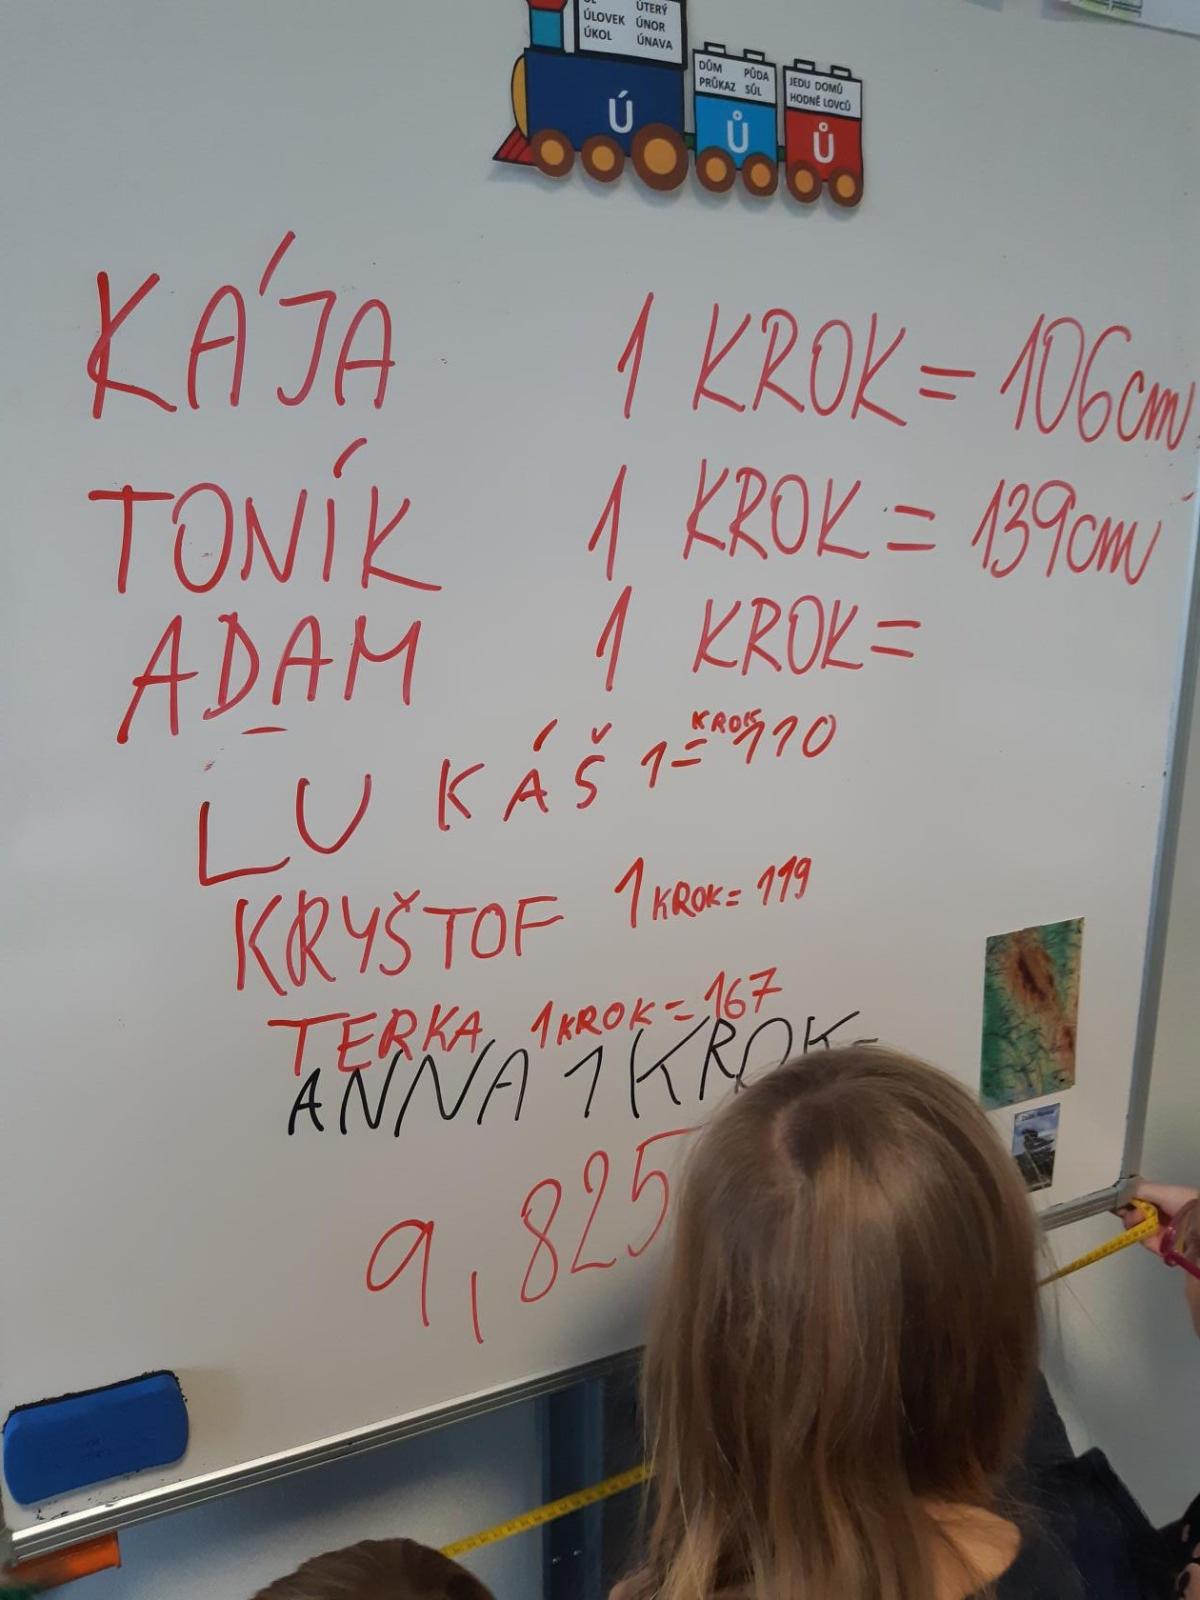 ÚTERÝ
ÚLOVEK ÚNOR
ÚKOL ÚNAVA
Ú
DŮM PŮDA
PRŮKAZ SŮL
Ů
JEDU DOMŮ
HODNĚ LOVCŮ
Ů
KÁJA 1 KROK = 106cm
TONÍK 1 KROK = 139cm
ADAM 1 KROK =
LUKÁŠ 1 KROK = 110
KRYŠTOF 1 KROK = 119
TERKA 1 KROK = 167
ANNA 1 KROK =
9,825